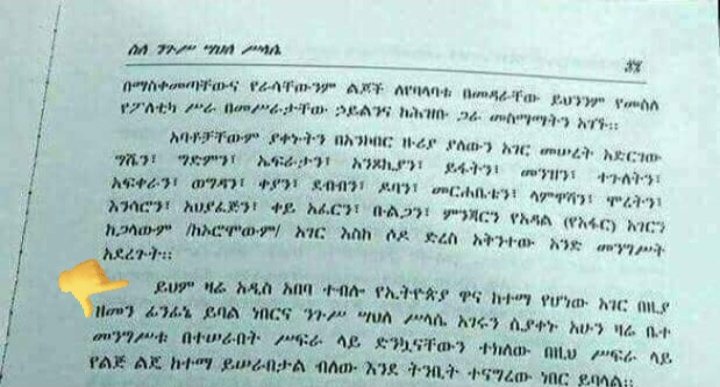 ስለ ንጉሥ ሣህለ ሥላሴ
በማስቀመጣቸውና የራሳቸውንም ልጆች ለየባላባቱ በመዳራቸው ይህንንም የመሰለ
የፖለቲካ ሥራ በመሥራታቸው ኃይልንና ከሕዝቡ ጋራ መስማማትን አገኙ።
አባቶቻቸውም ያቀኑትን በአንኮበር ዙሪያ ያለውን አገር መሠረት አድርገው
ግሼን፤ ግድምን፤ ኤፍራታን፤ አንጾኪያን፤ ይፋትን፤ መንዝን፤ ተጉለትን፤
አፍቀራን፤ ወግዳን፤ ቀያን፤ ደብብን፤ ዶባን፤ መርሐቤቴን፤ ላምዋሻን፤ ሞረትን፤
እንሳሮን፤ አህያፈጅን፤ ቀይ አፈርን፤ ቡልጋን፤ ምንጃርን የአዳል (የአፋር) አገርን
ከጋላውም /ከኦሮሞውም/ አገር እስከ ሶዶ ድረስ አቅንተው አንድ መንግሥት
አደረጉት።
ይህም ዛሬ አዲስ አበባ ተብሎ የኢትዮጵያ ዋና ከተማ የሆነው አገር በዚያ
ዘመን ፊንፊኔ ይባል ነበርና ንጉሥ ሣህለ ሥላሴ አገሩን ሲያቀኑ አሁን ዛሬ ቤተ
መንግሥቱ በተሠራበት ሥፍራ ላይ ድንኳናቸውን ተክለው በዚህ ሥፍራ ላይ
የልጅ ልጄ ከተማ ይሠራበታል ብለው እንደ ትንቢት ተናግረው ነበር ይባላል።